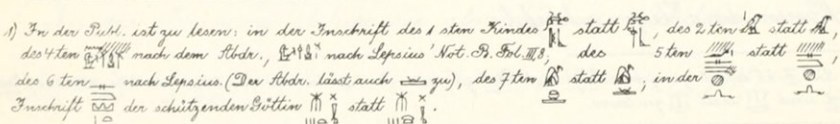 1) In der Publ. ist zu lesen: in der Inschrift des 1 sten Kindes statt , des 2 ten statt ,
des 4 ten nach dem Abdr., nach Lepsius' Not. B. Fol. III,8, des 5 ten statt ,
des 6 ten nach Lepsius. (Der Abdr. lässt auch zu), des 7 ten statt , in der
Inschrift der schützenden Göttin statt .